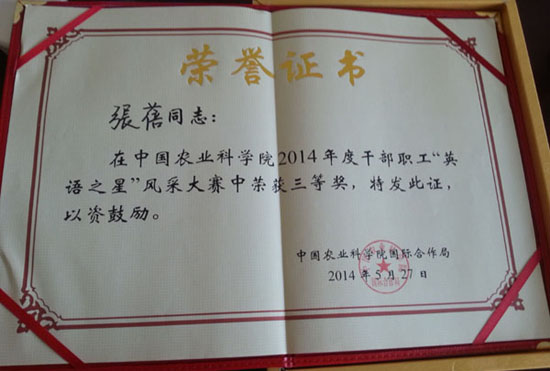 荣誉证书
張蓓同志：
在中国农业科学院2014年度干部职工“英
语之星”风采大赛中荣获三等奖，特发此证，
以资鼓励。
中国农业科学院国际合作局
2014年5月27日